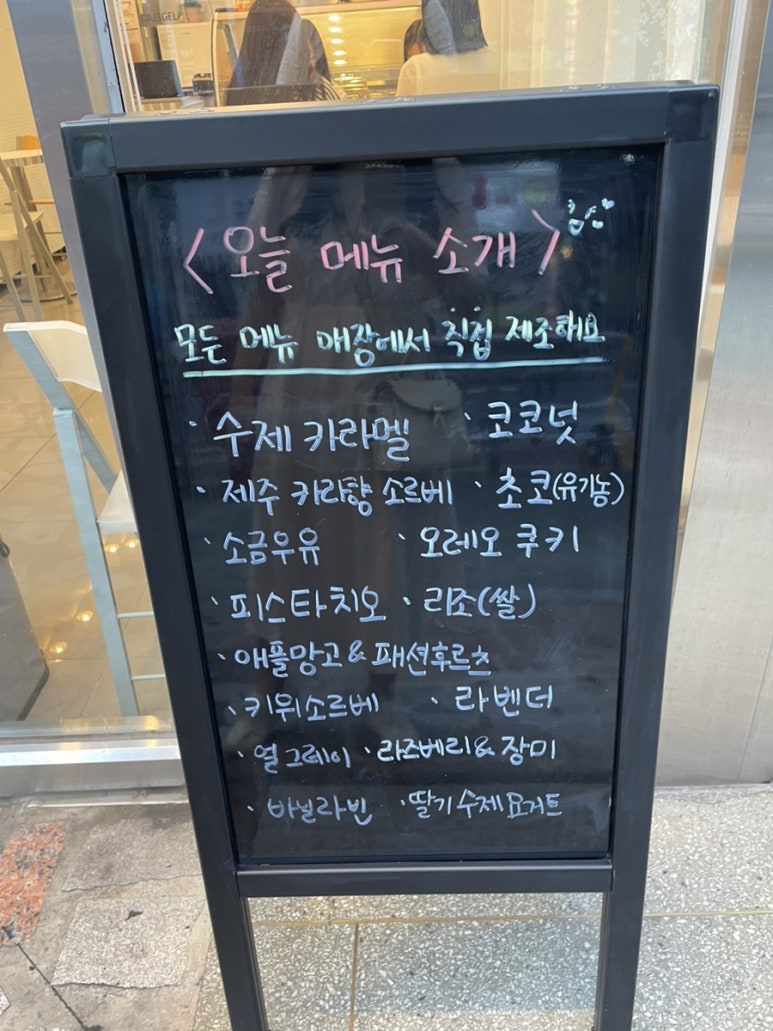 <오늘 메뉴 소개>
모든 메뉴 매장에서 직접 제조해요
· 수제 카라멜 · 코코넛
· 제주 카라향 소르베 · 초코(유기농)
· 소금우유 · 오레오 쿠키
· 피스타치오 · 리조(쌀)
· 애플망고 & 패션후르츠
· 키위소르베 · 라벤더
· 얼그레이 · 라즈베리 & 장미
· 바닐라빈 · 딸기수제요거트